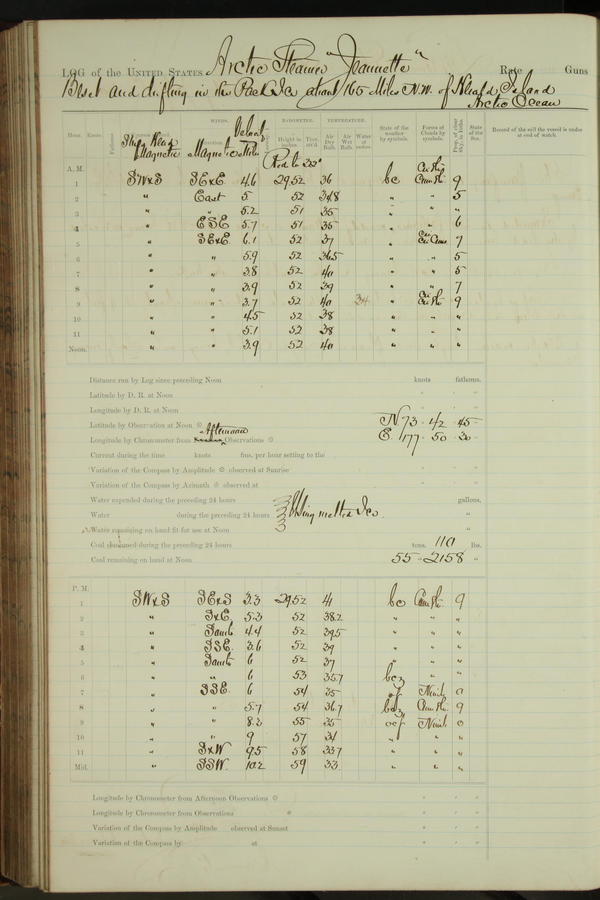 LOG of the UNITED STATES Arctic Steamer "Jeannette" Rate Guns
Beset and drifting in the Pack Ice about 165 Miles N.W. of Herald Island
Arctic Ocean
WINDS. BAROMETER. TEMPERATURE.
Hour. Knots. Ship's Head Magnetic Magnetic Velocity Height in inches Ther. att'd. Air Dry Bulb. Air Wet Bulb. Water at surface. State of the weather by symbols. Forms of Clouds by symbols. Prop. of clear sky, in tenths. State of the Sea. Record of the sail the vessel is under at end of watch.
Red to 32°
A. M.
1 SW x S SE x E 4.6 29.52 36 bc Cum Str. 9
2 " East 5 52 34.8 " " 5
3 " " 5.2 51 35 " " "
4 " ESE 5.7 51 35 " " 6
5 " SE x E 6.1 52 37 " Cir Cum 7
6 " " 5.9 52 36.5 " " 5
7 " " 3.8 52 40 " " 5
8 " " 3.9 52 39 " " 7
9 " " 3.7 52 40 34 " Cir Str 9
10 " " 4.5 52 38 " " "
11 " " 5.1 52 38 " " "
Noon. " " 3.9 52 40 " " "
Distance run by Log since preceding Noon knots fathoms.
Latitude by D. R. at Noon
Longitude by D. R. at Noon
Latitude by Observation at Noon N 73 42 45
Longitude by Chronometer from Afternoon Observations E. 177 50 30
Current during the time knots fms. per hour setting to the
Variation of the Compass by Amplitude observed at Sunrise
Variation of the Compass by Azimuth observed at
Water expended during the preceding 24 hours gallons.
Water during the preceding 24 hours Using melted Ice "
Water remaining on hand fit for use at Noon "
Coal consumed during the preceding 24 hours tons. 110 lbs.
Coal remaining on hand at Noon 55 2158 "
P. M.
1 SW x S SE x S 3.3 29.52 41 bc Cum Str. 9
2 " S x E 5.3 52 38.2 " " "
3 " South 4.4 52 39.5 " " "
4 " SSE 3.6 52 39 " " "
5 " South 6 52 37 " " "
6 " " 6 53 35.7 bcz
7 " SSE. 6 54 35 of Nimb. 0
8 " " 5.7 54 36.7 bcz Cum Str. 9
9 " " 8.2 55 35 ocf Nimb. 0
10 " " 9 57 34 " " "
11 " S x W 9.5 58 33.7 " " "
Mid. " SSW. 10.2 59 33 " " "
Longitude by Chronometer from Afternoon Observations
Longitude by Chronometer from Observations
Variation of the Compass by Amplitude observed at Sunset
Variation of the Compass by at